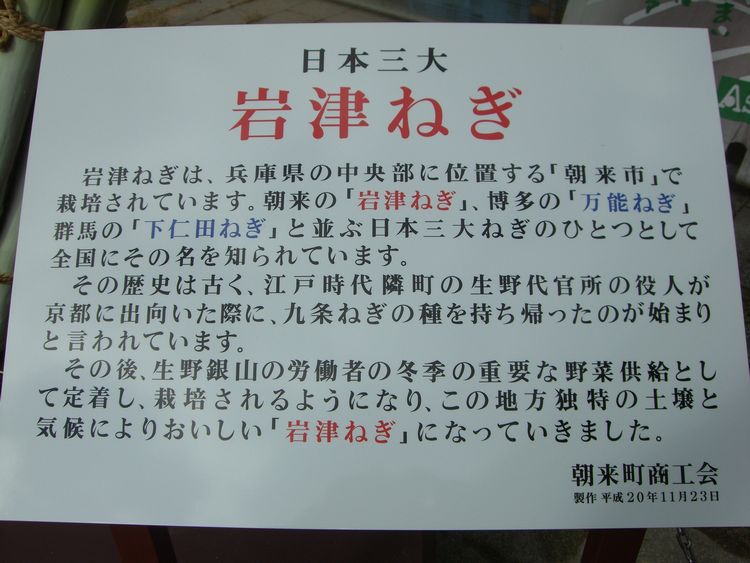 日本三大
岩津ねぎ
岩津ねぎは、兵庫県の中央部に位置する「朝来市」で
栽培されています。朝来の「岩津ねぎ」、博多の「万能ねぎ」
群馬の「下仁田ねぎ」と並ぶ日本三大ねぎのひとつとして
全国にその名を知られています。
その歴史は古く、江戸時代隣町の生野代官所の役人が
京都に出向いた際に、九条ねぎの種を持ち帰ったのが始まり
と言われています。
その後、生野銀山の労働者の冬季の重要な野菜供給とし
て定着し、栽培されるようになり、この地方独特の土壌と
気候によりおいしい「岩津ねぎ」になっていきました。
朝来町商工会
製作 平成20年11月23日